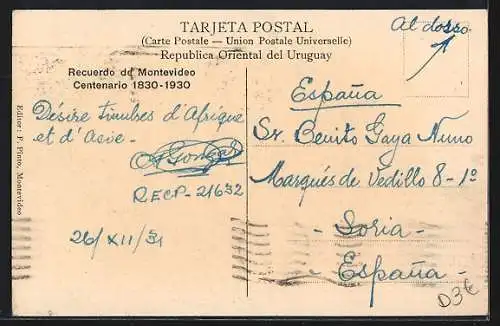 TARJETA POSTAL
(Carte Postale — Union Postale Universelle)
Republica Oriental del Uruguay
Al dosso
Recuerdo de Montevideo
Centenario 1830-1930
Editor: F. Pinto, Montevideo
Désire timbres d'Afrique
et d'Asie.
RECP-21632
26/XII/31
España
Sr. Benito Gaya Nuno
Marqués de Vedillo 8-1º
- Soria -
- España -
D3€